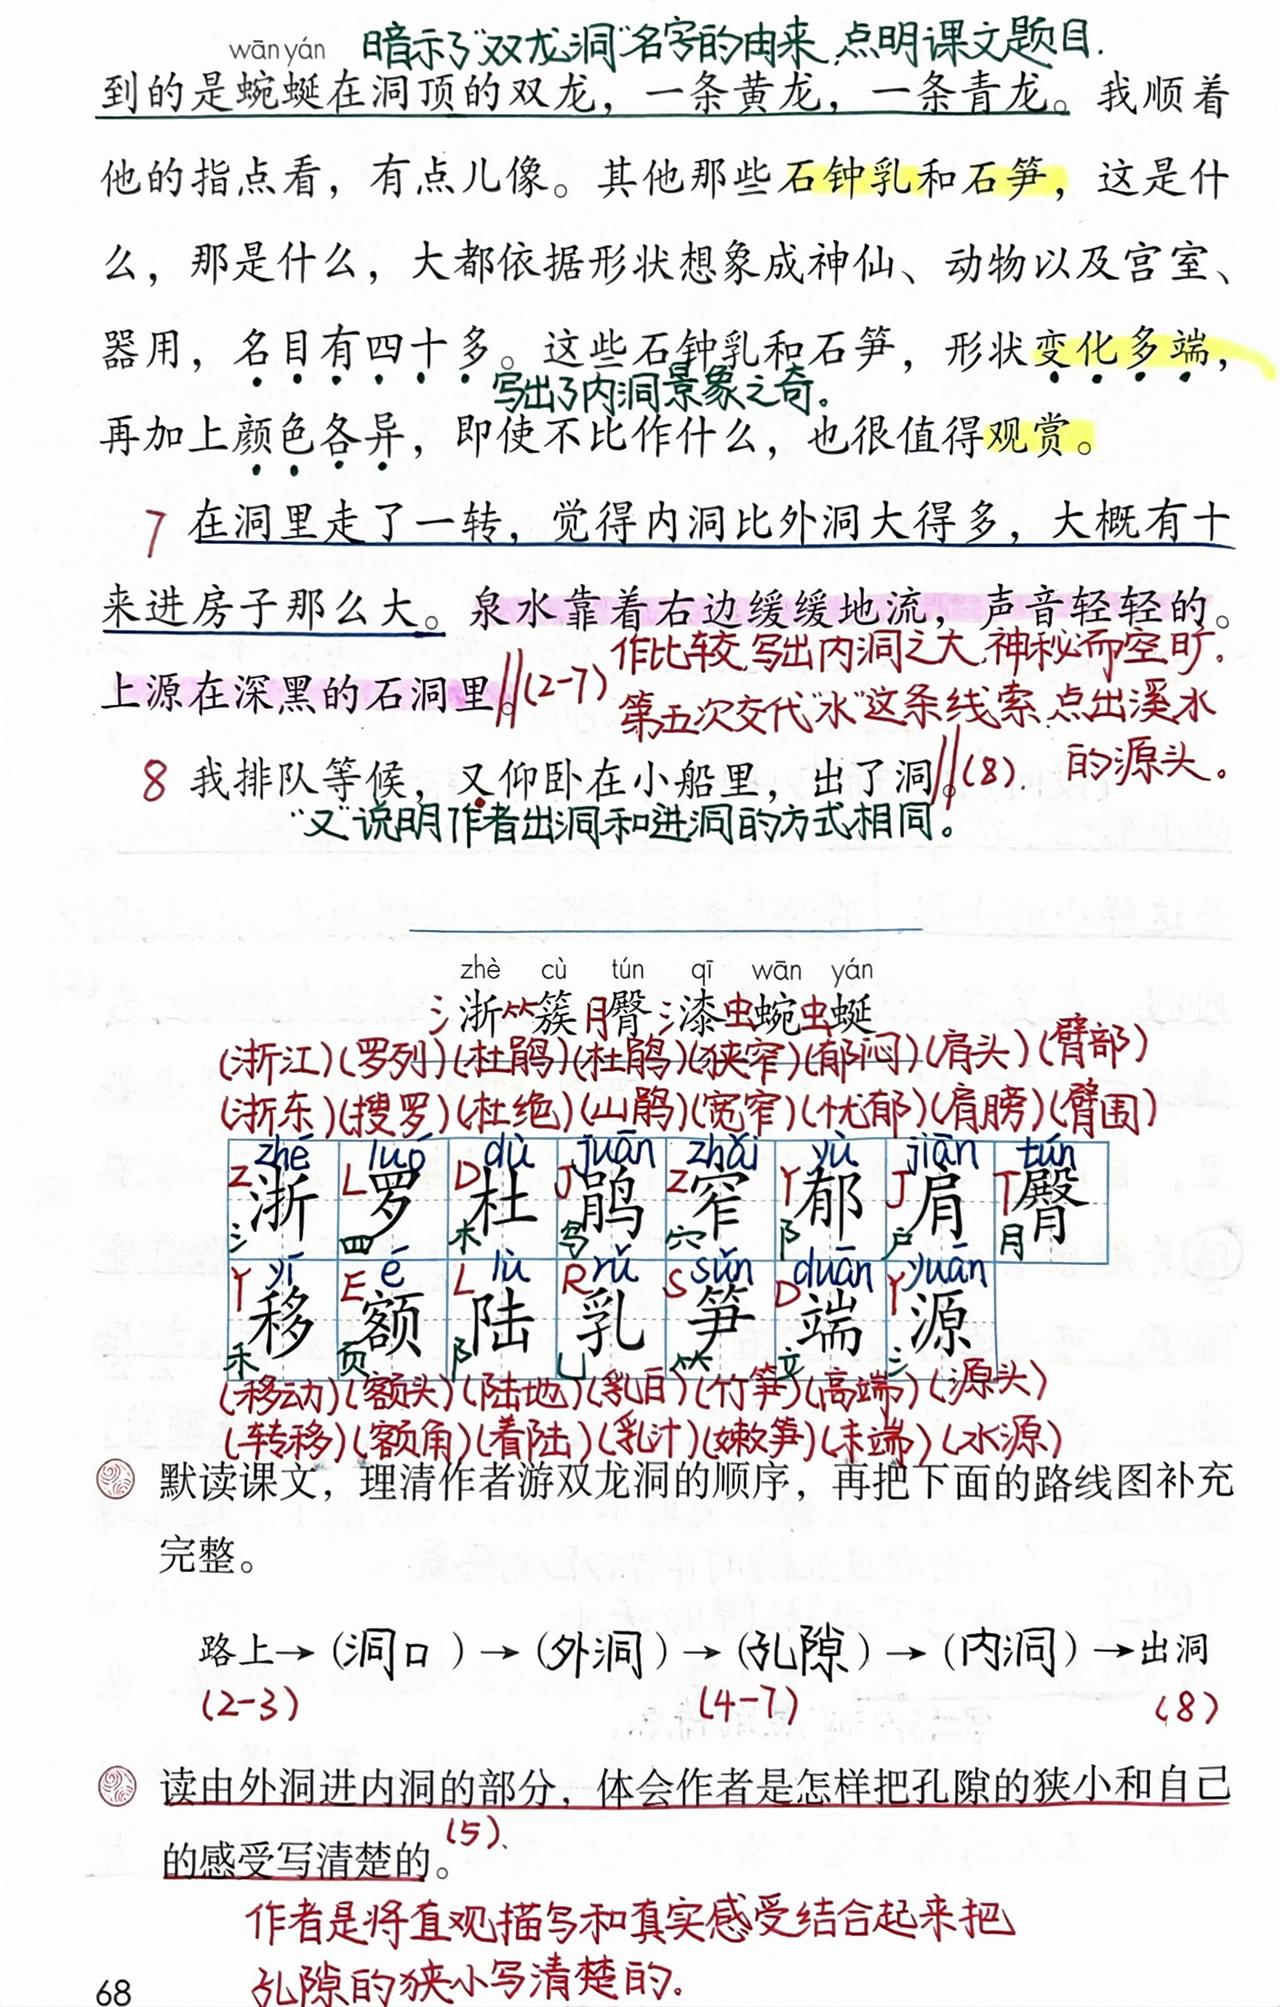 wān yán 暗示了“双龙洞”名字的由来,点明课文题目.
到的是蜿蜒在洞顶的双龙，一条黄龙，一条青龙。我顺着
他的指点看，有点儿像。其他那些石钟乳和石笋，这是什
么，那是什么，大都依据形状想象成神仙、动物以及宫室、
器用，名目有四十多。这些石钟乳和石笋，形状变化多端，
写出了内洞景象之奇。
再加上颜色各异，即使不比作什么，也很值得观赏。
7 在洞里走了一转，觉得内洞比外洞大得多，大概有十
来进房子那么大。泉水靠着右边缓缓地流，声音轻轻的。
作比较,写出内洞之大,神秘而空旷.
上源在深黑的石洞里。∥(2-7) 第五次交代“水”这条线索,点出溪水
的源头。
8 我排队等候，又仰卧在小船里，出了洞。∥(8)
“又”说明作者出洞和进洞的方式相同。
zhè cù tún qī wān yán
氵浙 ⺮簇 月臀 氵漆 虫蜿 虫蜒
(浙江)(罗列)(杜鹃)(杜鹃)(狭窄)(郁闷)(肩头)(臂部)
(浙东)(搜罗)(杜绝)(山鹃)(宽窄)(忧郁)(肩膀)(臂围)
zhē luó dù juān zhǎi yù jiān tún
Z L D J Z Y J T
浙 罗 杜 鹃 窄 郁 肩 臀
氵 四 木 鸟 穴 阝 户 月
yí é lù rǔ sǔn duān yuán
Y E L R S D Y
移 额 陆 乳 笋 端 源
禾 页 阝 乚 ⺮ 立 氵
(移动)(额头)(陆地)(乳白)(竹笋)(高端)(源头)
(转移)(额角)(着陆)(乳汁)(嫩笋)(末端)(水源)
默读课文，理清作者游双龙洞的顺序，再把下面的路线图补充
完整。
路上→(洞口)→(外洞)→(孔隙)→(内洞)→出洞
(2-3) (4-7) (8)
读由外洞进内洞的部分，体会作者是怎样把孔隙的狭小和自己
的感受写清楚的。(5).
作者是将直观描写和真实感受结合起来把
孔隙的狭小写清楚的.
68